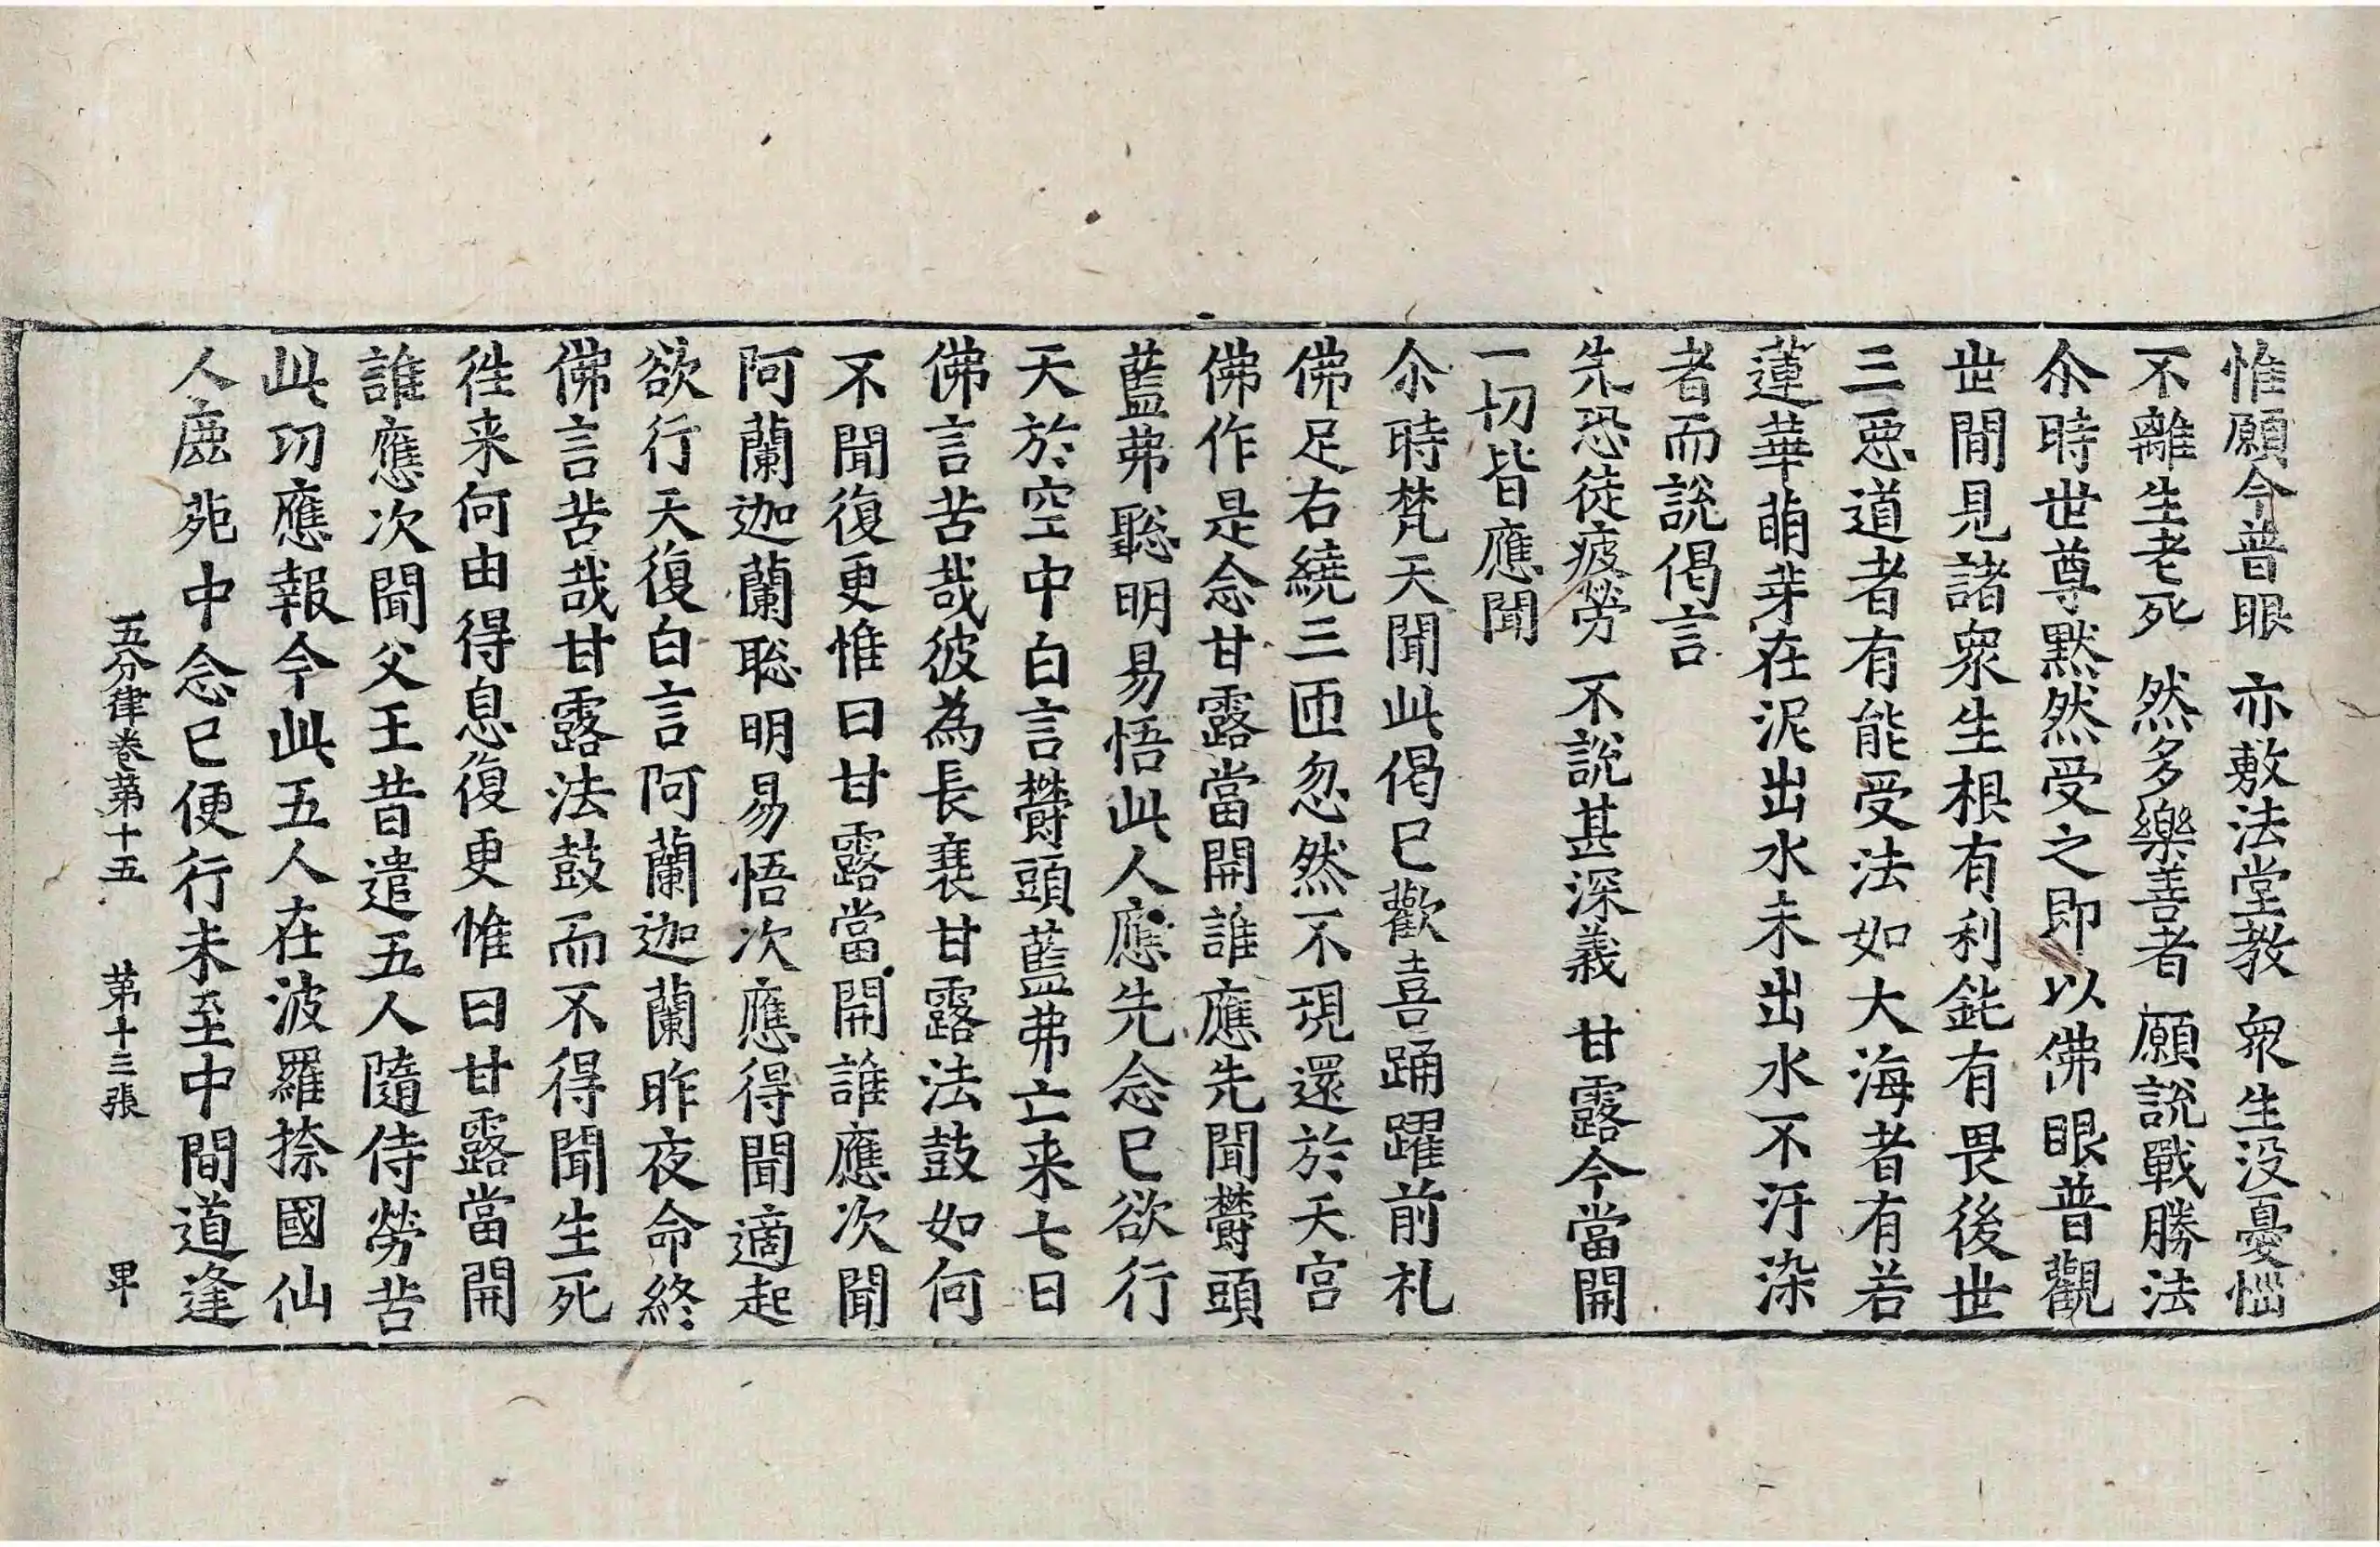 惟願令普眼　亦敷法堂教　衆生没憂惱
不離生老死　然多樂善者　願説戰勝法
尒時世尊黙然受之即以佛眼普觀
世間見諸衆生根有利鈍有畏後世
三惡道者有能受法如大海者有若
蓮華萌芽在泥出水未出水不汙染
者而説偈言
先恐徒疲勞　不説甚深義　甘露今當開
一切皆應聞
尒時梵天聞此偈已歡喜踊躍前礼
佛足右繞三匝忽然不現還於天宫
佛作是念甘露當開誰應先聞欝頭
藍弗聦明易悟此人應先念已欲行
天於空中白言欝頭藍弗亡来七日
佛言苦哉彼為長衰甘露法鼓如何
不聞復更惟曰甘露當開誰應次聞
阿蘭迦蘭聦明易悟次應得聞適起
欲行天復白言阿蘭迦蘭昨夜命終
佛言苦哉甘露法鼓而不得聞生死
徃来何由得息復更惟曰甘露當開
誰應次聞父王昔遣五人隨侍勞苦
此功應報今此五人在波羅捺國仙
人鹿苑中念已便行未至中間道逢
五分律卷苐十五　苐十三張　畢